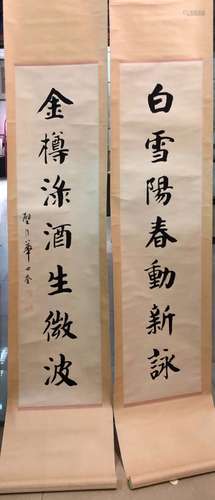 白雪陽春動新詠
金樽渌酒生微波